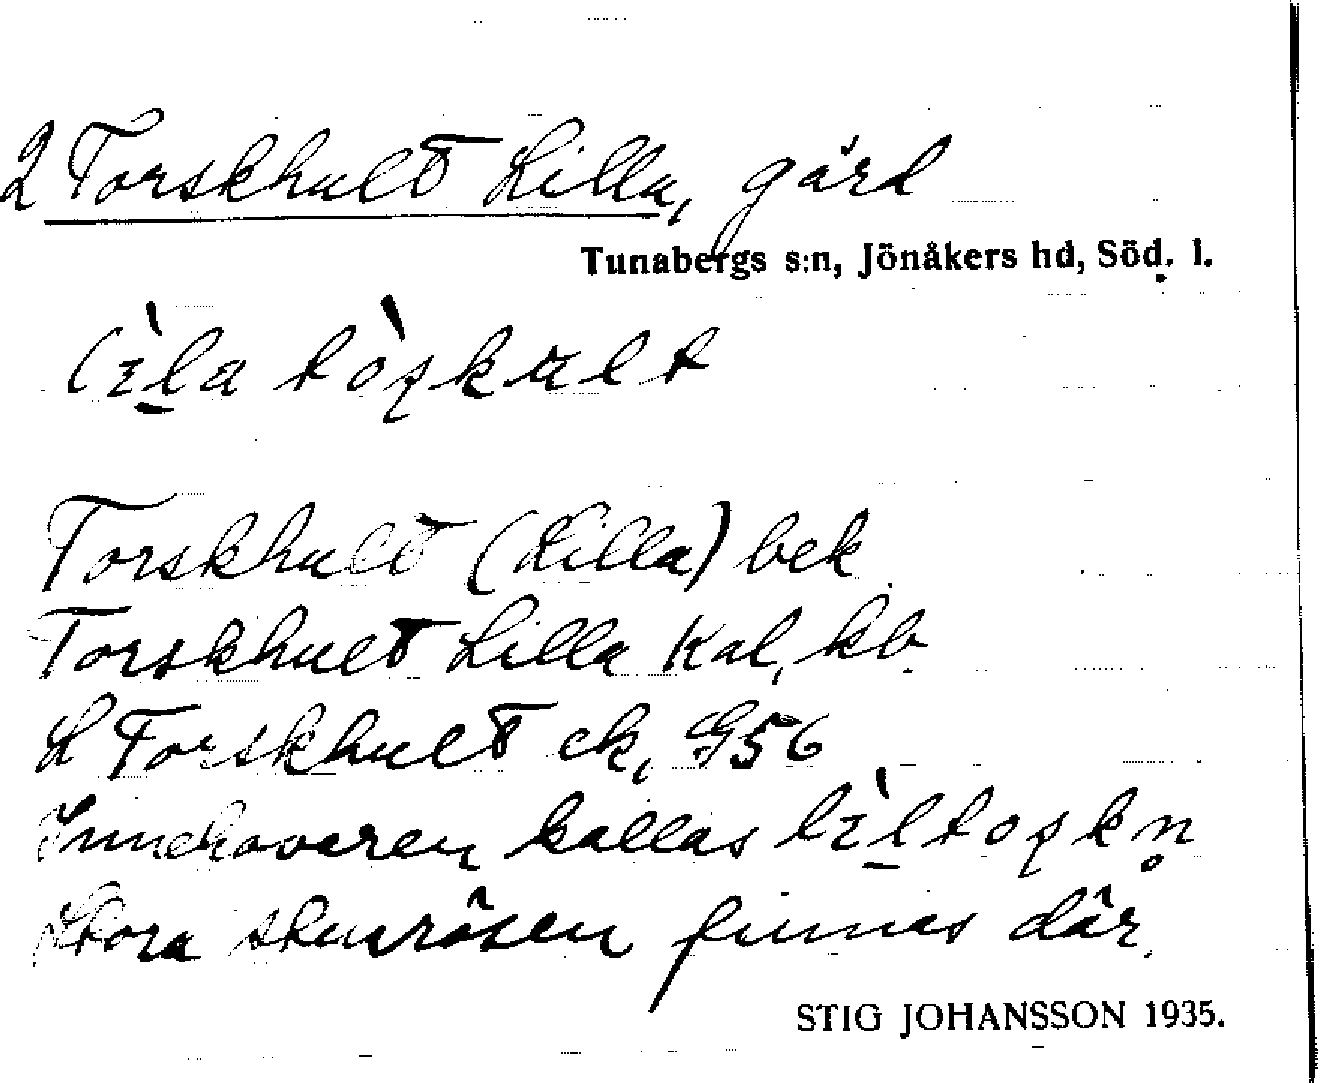 2 Torskhult Lilla, gård
Tunabergs s:n, Jönåkers hd, Söd. l.
Torskhult (Lilla) bek
Torskhult Lilla Kal, kb.
L Torskhult ek, G56
Innehavaren kallas
Stora stenrösen finnas där.
STIG JOHANSSON 1935.